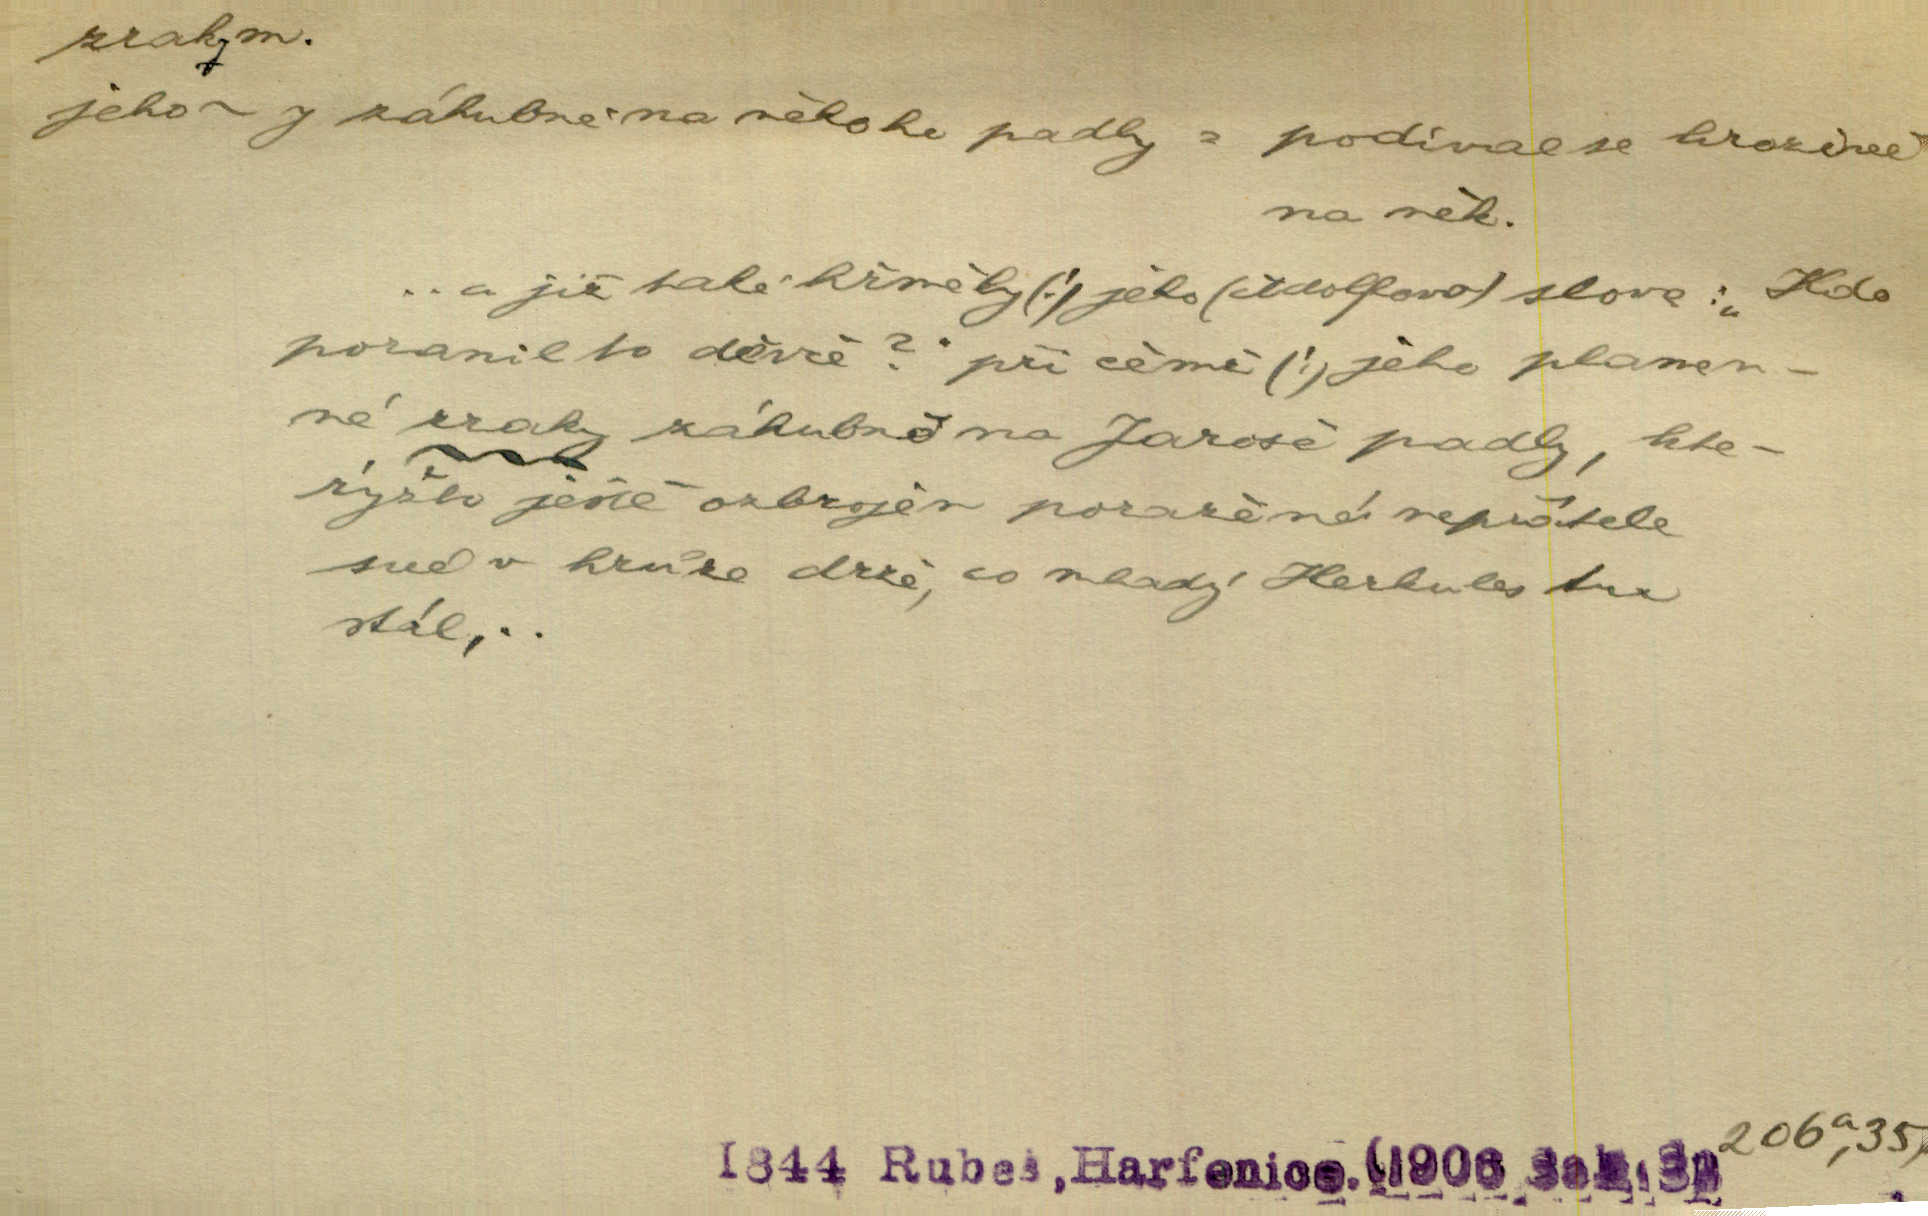 zrak, m.
jeho ~ y záhubně na někoho padly = podíval se hrozivě
na něk.
.. a již také hřměly (!) jeho (Adolfova) slova: „Kdo
poranil to děvče?" při čemž (!) jeho plamen-
né zraky záhubně na Jaroše padly, kte-
rýžto ještě ozbrojen poražené nepřátele
své v hrůze drže, co mladý Herkules tu
stál,..
1844 Rubeš, Harfenice. (1906
206a,35